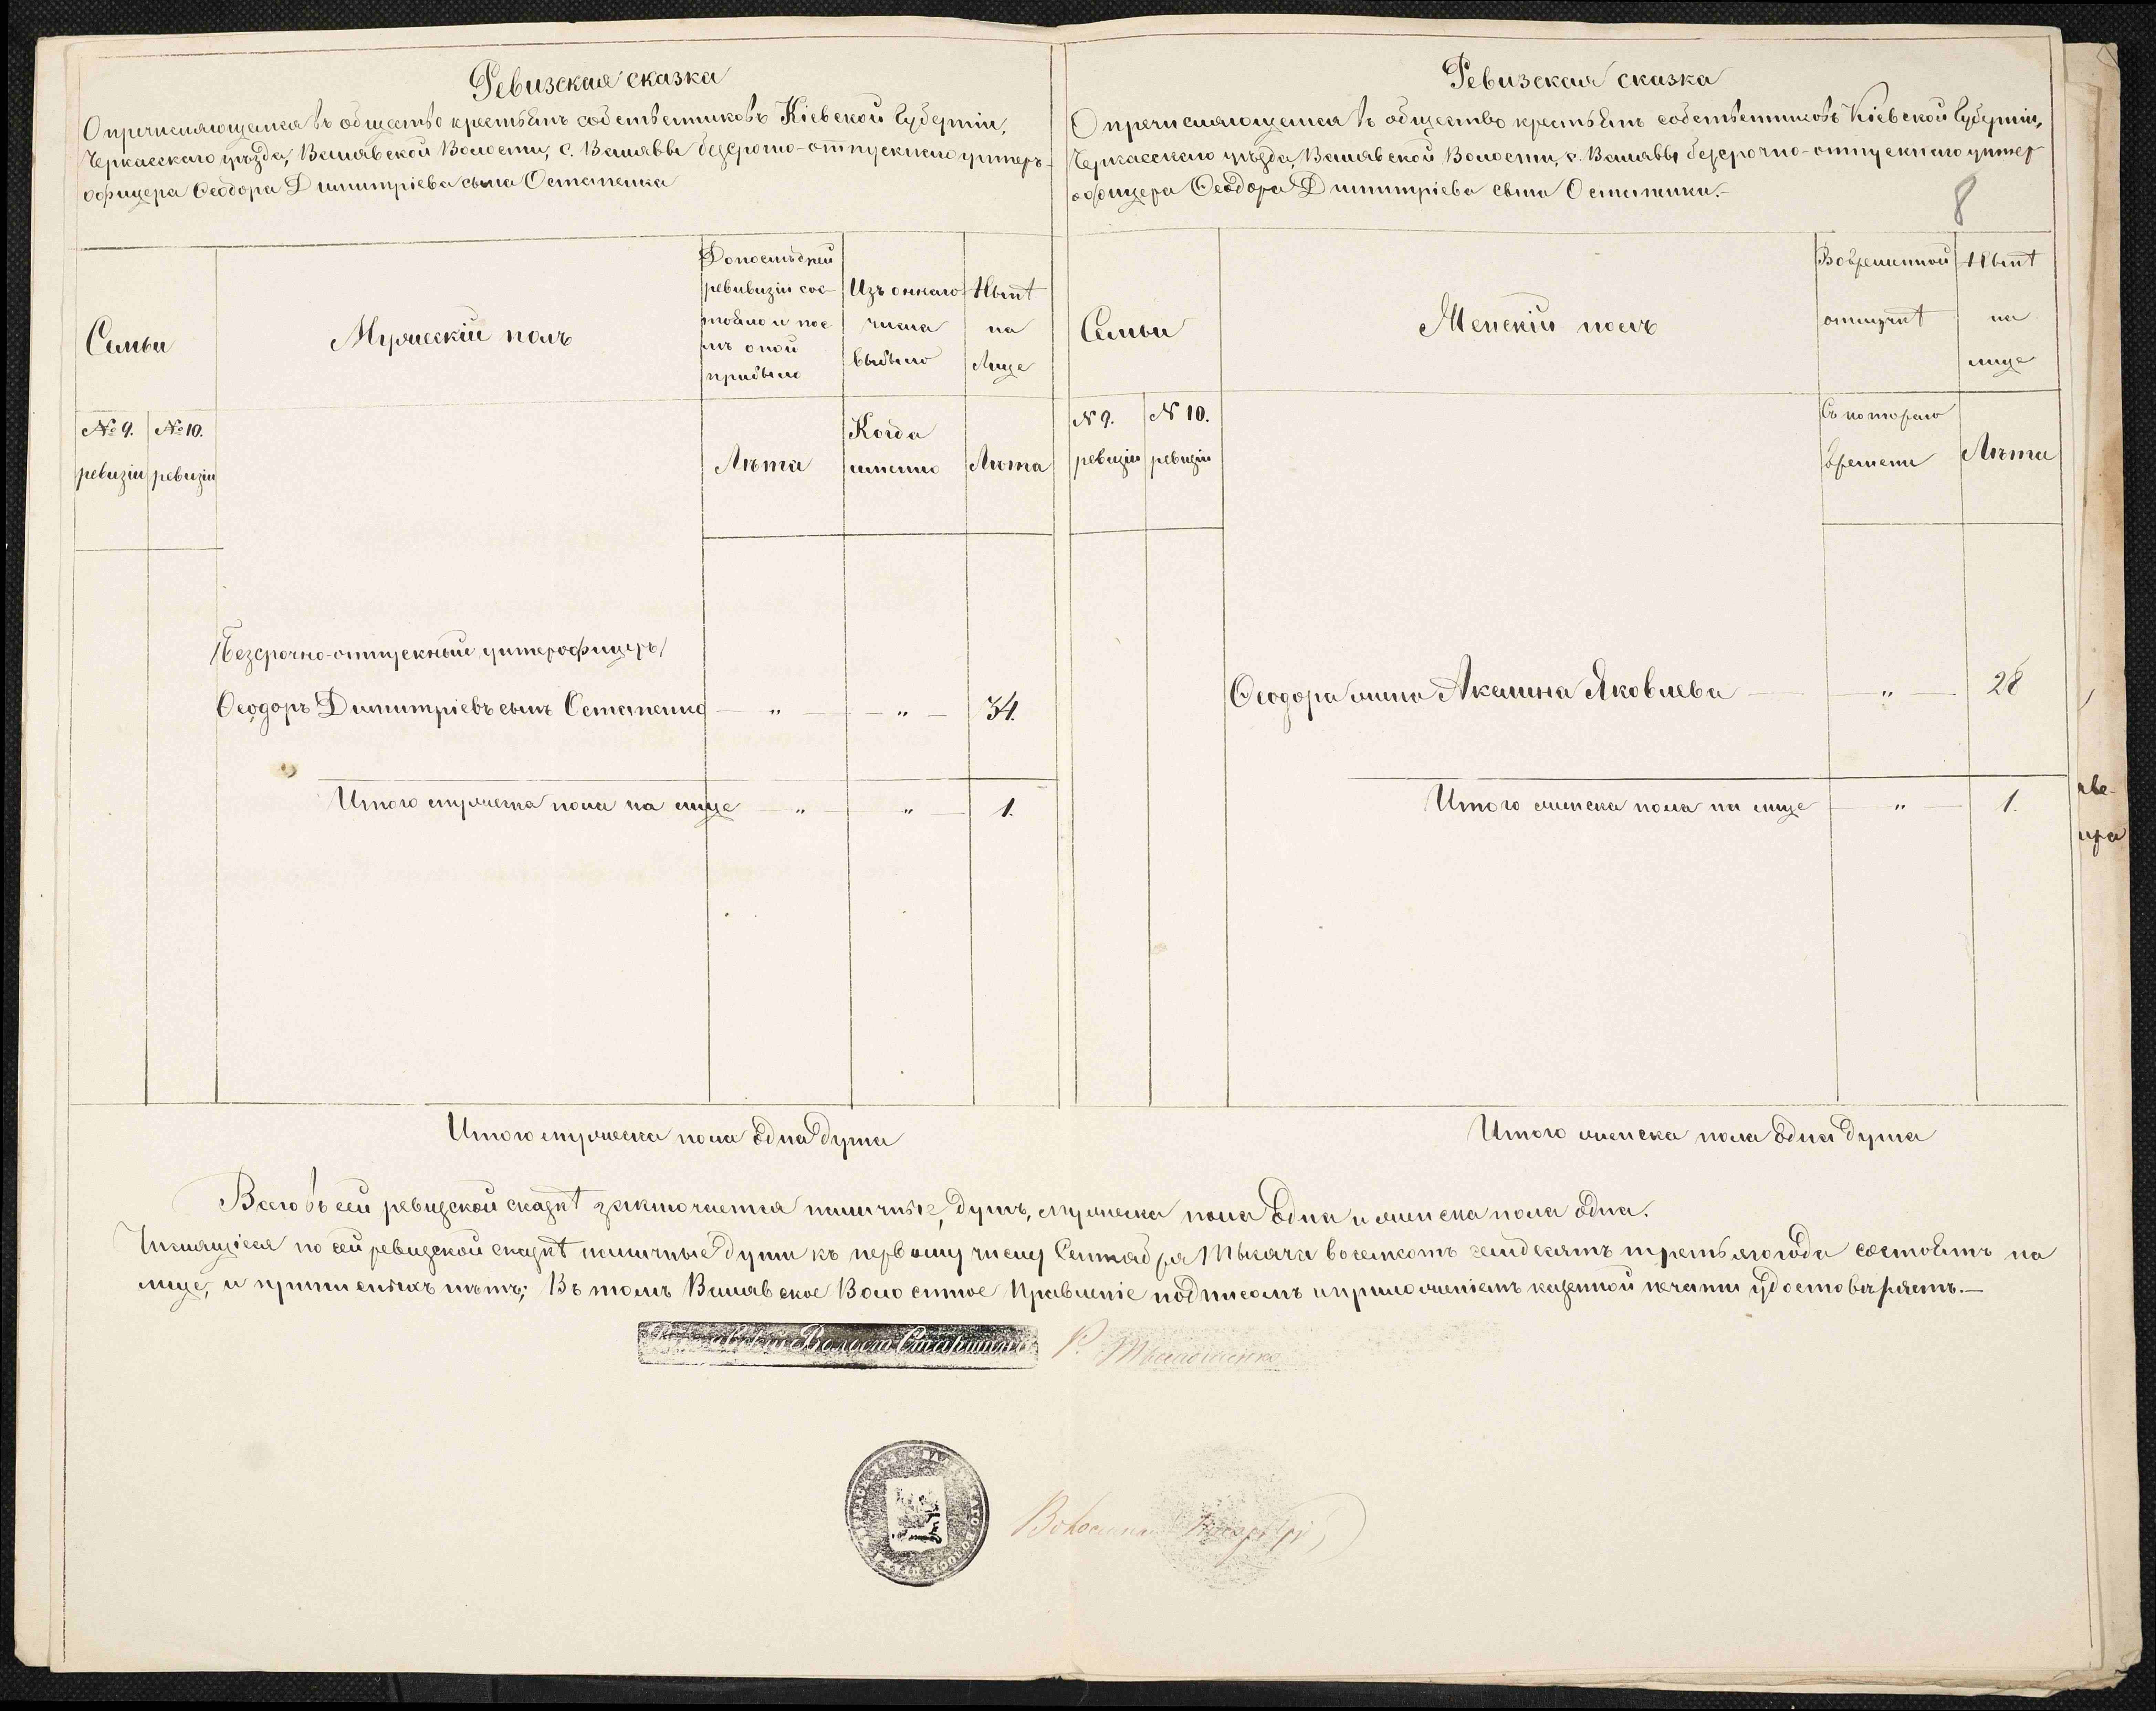 Ревизская сказка
О причисляющемся въ общество крестьянъ собственниковъ Кіевской Губерніи,
Черкасскаго уѣзда, Вязовской Волости, с. безсрочно-отпускнаго унтеръ-
офицера Ѳеодора Димитріева сына Остапенка
Семьи
Мужескій полъ
Допослѣдней
ревивизіи сос-
тояло и пос
лѣ оной
прибыло
Изъ онаго
числа
выбыло
Нынѣ
на
Лице
№ 9. № 10.
ревизіи ревизіи
Лѣта
Когда
именно
Лѣта
/Безсрочно-отпускный унтерофицеръ/
Ѳеодоръ Димитріевъ сынъ Остапенко — " — — " — 34.
Итого мужеска пола на лице — " — " — 1.
Итого мужеска пола одна душа
Ревизская сказка
О причисляющемся въ общество крестьянъ собственниковъ Кіевской Губерніи,
Черкасскаго уѣзда, Волости, с. безсрочно-отпускнаго унтер
офицера Ѳеодора Димитріева сына Остапенки.—
8
Семьи
Женскій полъ
Вовременной
отлучкѣ
Нынѣ
на
лице
№ 9. № 10.
ревизіи ревизіи
Съ котораго
времени
Лѣта
Ѳеодора жена Акилина Яковлева — " — 28
Итого женска пола на лице — " — 1.
Итого женска пола одна душа
Всего въ сей ревизской сказкѣ заключается наличныхъ душъ, мужеска пола одна и женска пола одна.
Числящіеся по сей ревизской сказкѣ наличные души къ первому числу Сентября Мѣсяца восемсотъ семдесятъ третьяго года состоятъ на
лице, и нѣтъ; Въ томъ Волостное Правленіе подписомъ и приложеніемъ казенной печати удостовѣряетъ.—
Волостн Старшина
Волостной Писарь